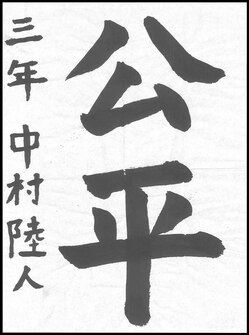 公平
三年 中村陸人